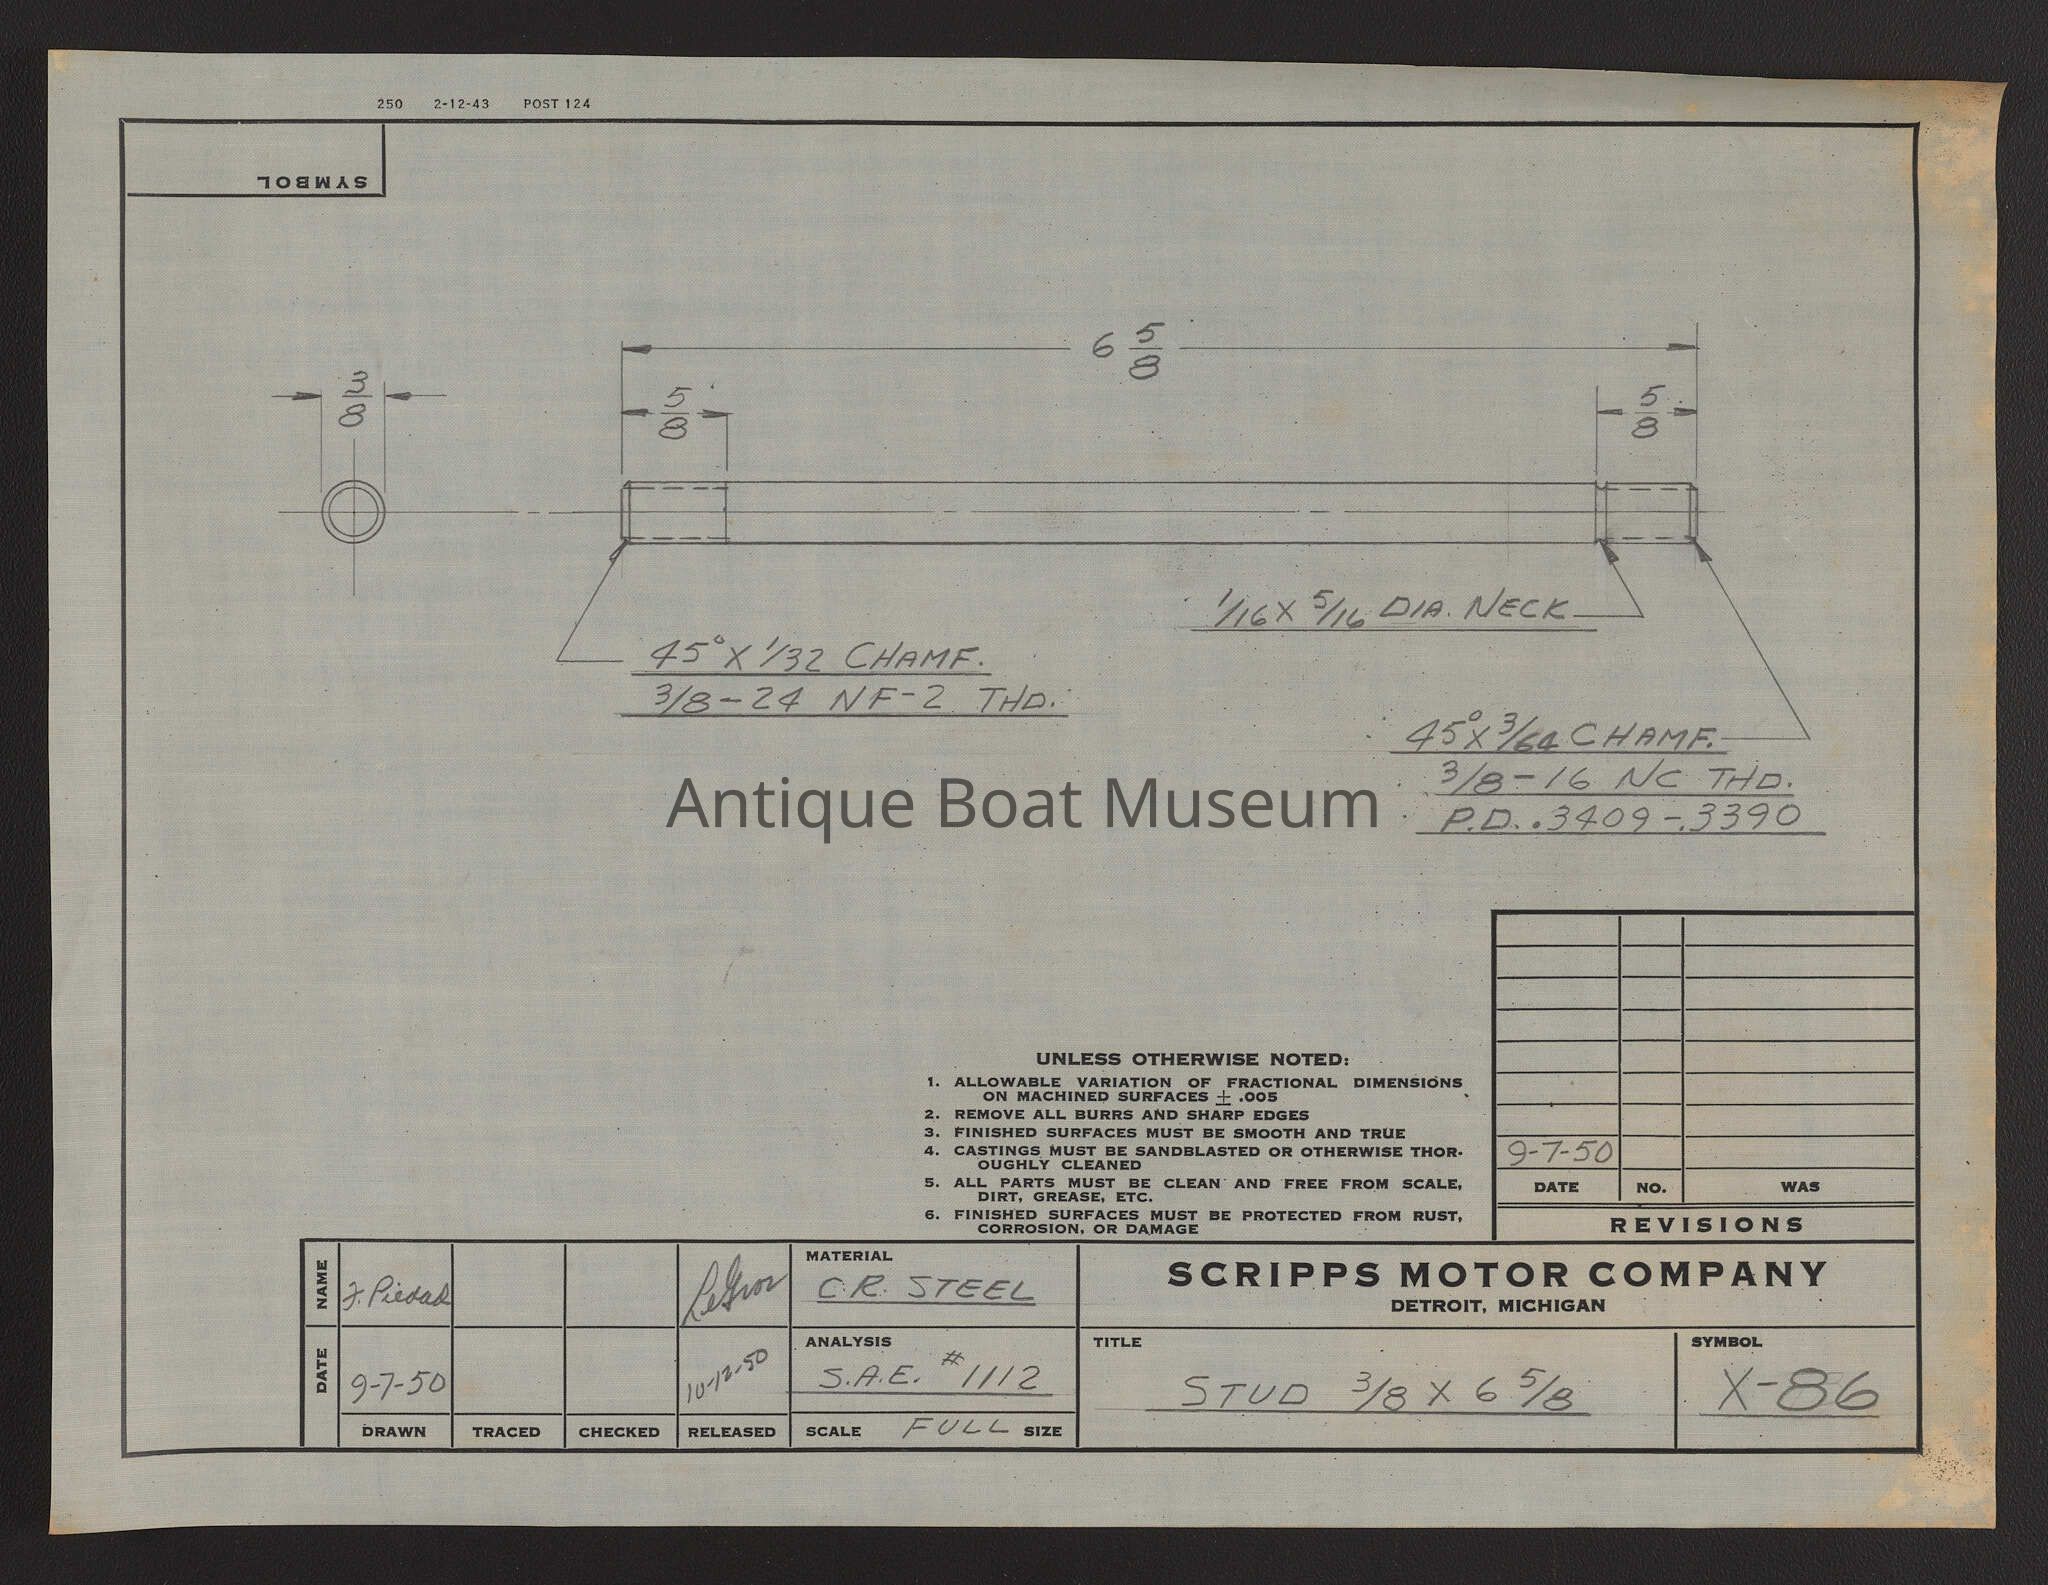 250 2-12-43 POST 124
SYMBOL
6 5/8
3/8
5/8
5/8
1/16 X 5/16 DIA. NECK
45° X 1/32 CHAMF.
3/8-24 NF-2 THD.
45° X 3/64 CHAMF.
3/8-16 NC THD.
P.D. .3409-.3390
Antique Boat Museum
UNLESS OTHERWISE NOTED:
1. ALLOWABLE VARIATION OF FRACTIONAL DIMENSIONS
ON MACHINED SURFACES ± .005
2. REMOVE ALL BURRS AND SHARP EDGES
3. FINISHED SURFACES MUST BE SMOOTH AND TRUE
4. CASTINGS MUST BE SANDBLASTED OR OTHERWISE THOR-
OUGHLY CLEANED
5. ALL PARTS MUST BE CLEAN AND FREE FROM SCALE,
DIRT, GREASE, ETC.
6. FINISHED SURFACES MUST BE PROTECTED FROM RUST,
CORROSION, OR DAMAGE
9-7-50
DATE NO. WAS
REVISIONS
NAME
F. Piedad
LeGros
DATE
9-7-50
10-12-50
DRAWN TRACED CHECKED RELEASED
MATERIAL
C.R. STEEL
ANALYSIS
S.A.E. #1112
SCALE FULL SIZE
SCRIPPS MOTOR COMPANY
DETROIT, MICHIGAN
TITLE
STUD 3/8 X 6 5/8
SYMBOL
X-86